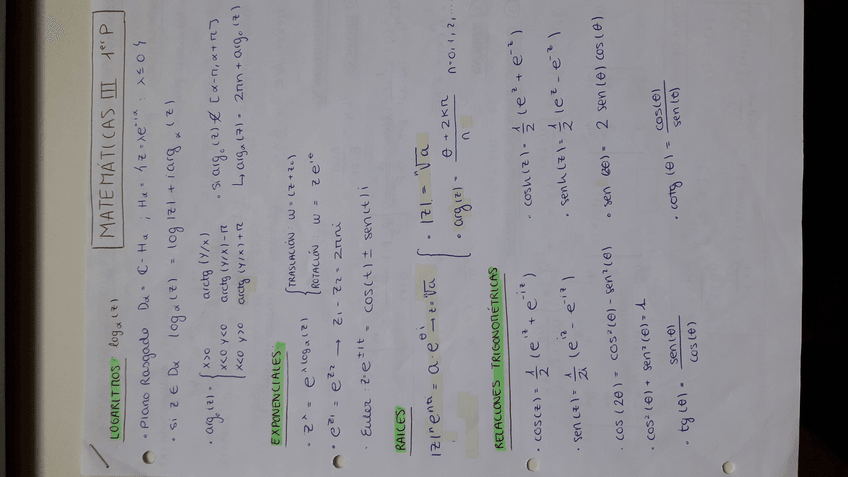 MATEMÁTICAS III 1er P
LOGARITMOS: log_α(z)
• Plano Rasgado D_α = ℂ - H_α ; H_α = {z = λe^{-iα} : λ ≤ 0}
• Si z ∈ D_α log_α(z) = log|z| + i arg_α(z)
• arg_0(z) = { x>0 arctg (y/x)
x<0 y<0 arctg (y/x) - π
x<0 y>0 arctg (y/x) + π
• Si arg_0(z) ∉ [α-π, α+π]
↳ arg_α(z) = 2πn + arg_0(z)
EXPONENCIALES
• z^λ = e^{λ log_α(z)}
{ TRASLACIÓN: ω = (z + z_0)
ROTACIÓN: ω = z e^{iθ}
• e^{z_1} = e^{z_2} → z_1 - z_2 = 2πni
• Euler z·e^{±it} = cos(t) ± sen(t)i
RAICES
|z|^n e^{nα} = a · e^{θi} → z = ⁿ√a { • |z| = ⁿ√a
• arg(z) = (θ + 2kπ)/n n=0,1,2,...
RELACIONES TRIGONOMÉTRICAS
• cos(z) = 1/2 (e^{iz} + e^{-iz}) • cosh(z) = 1/2 (e^z + e^{-z})
• sen(z) = 1/2i (e^{iz} - e^{-iz}) • senh(z) = 1/2 (e^z - e^{-z})
• cos(2θ) = cos²(θ) - sen²(θ) • sen(2θ) = 2 sen(θ) cos(θ)
• cos²(θ) + sen²(θ) = 1
• tg(θ) = sen(θ)/cos(θ) • cotg(θ) = cos(θ)/sen(θ)